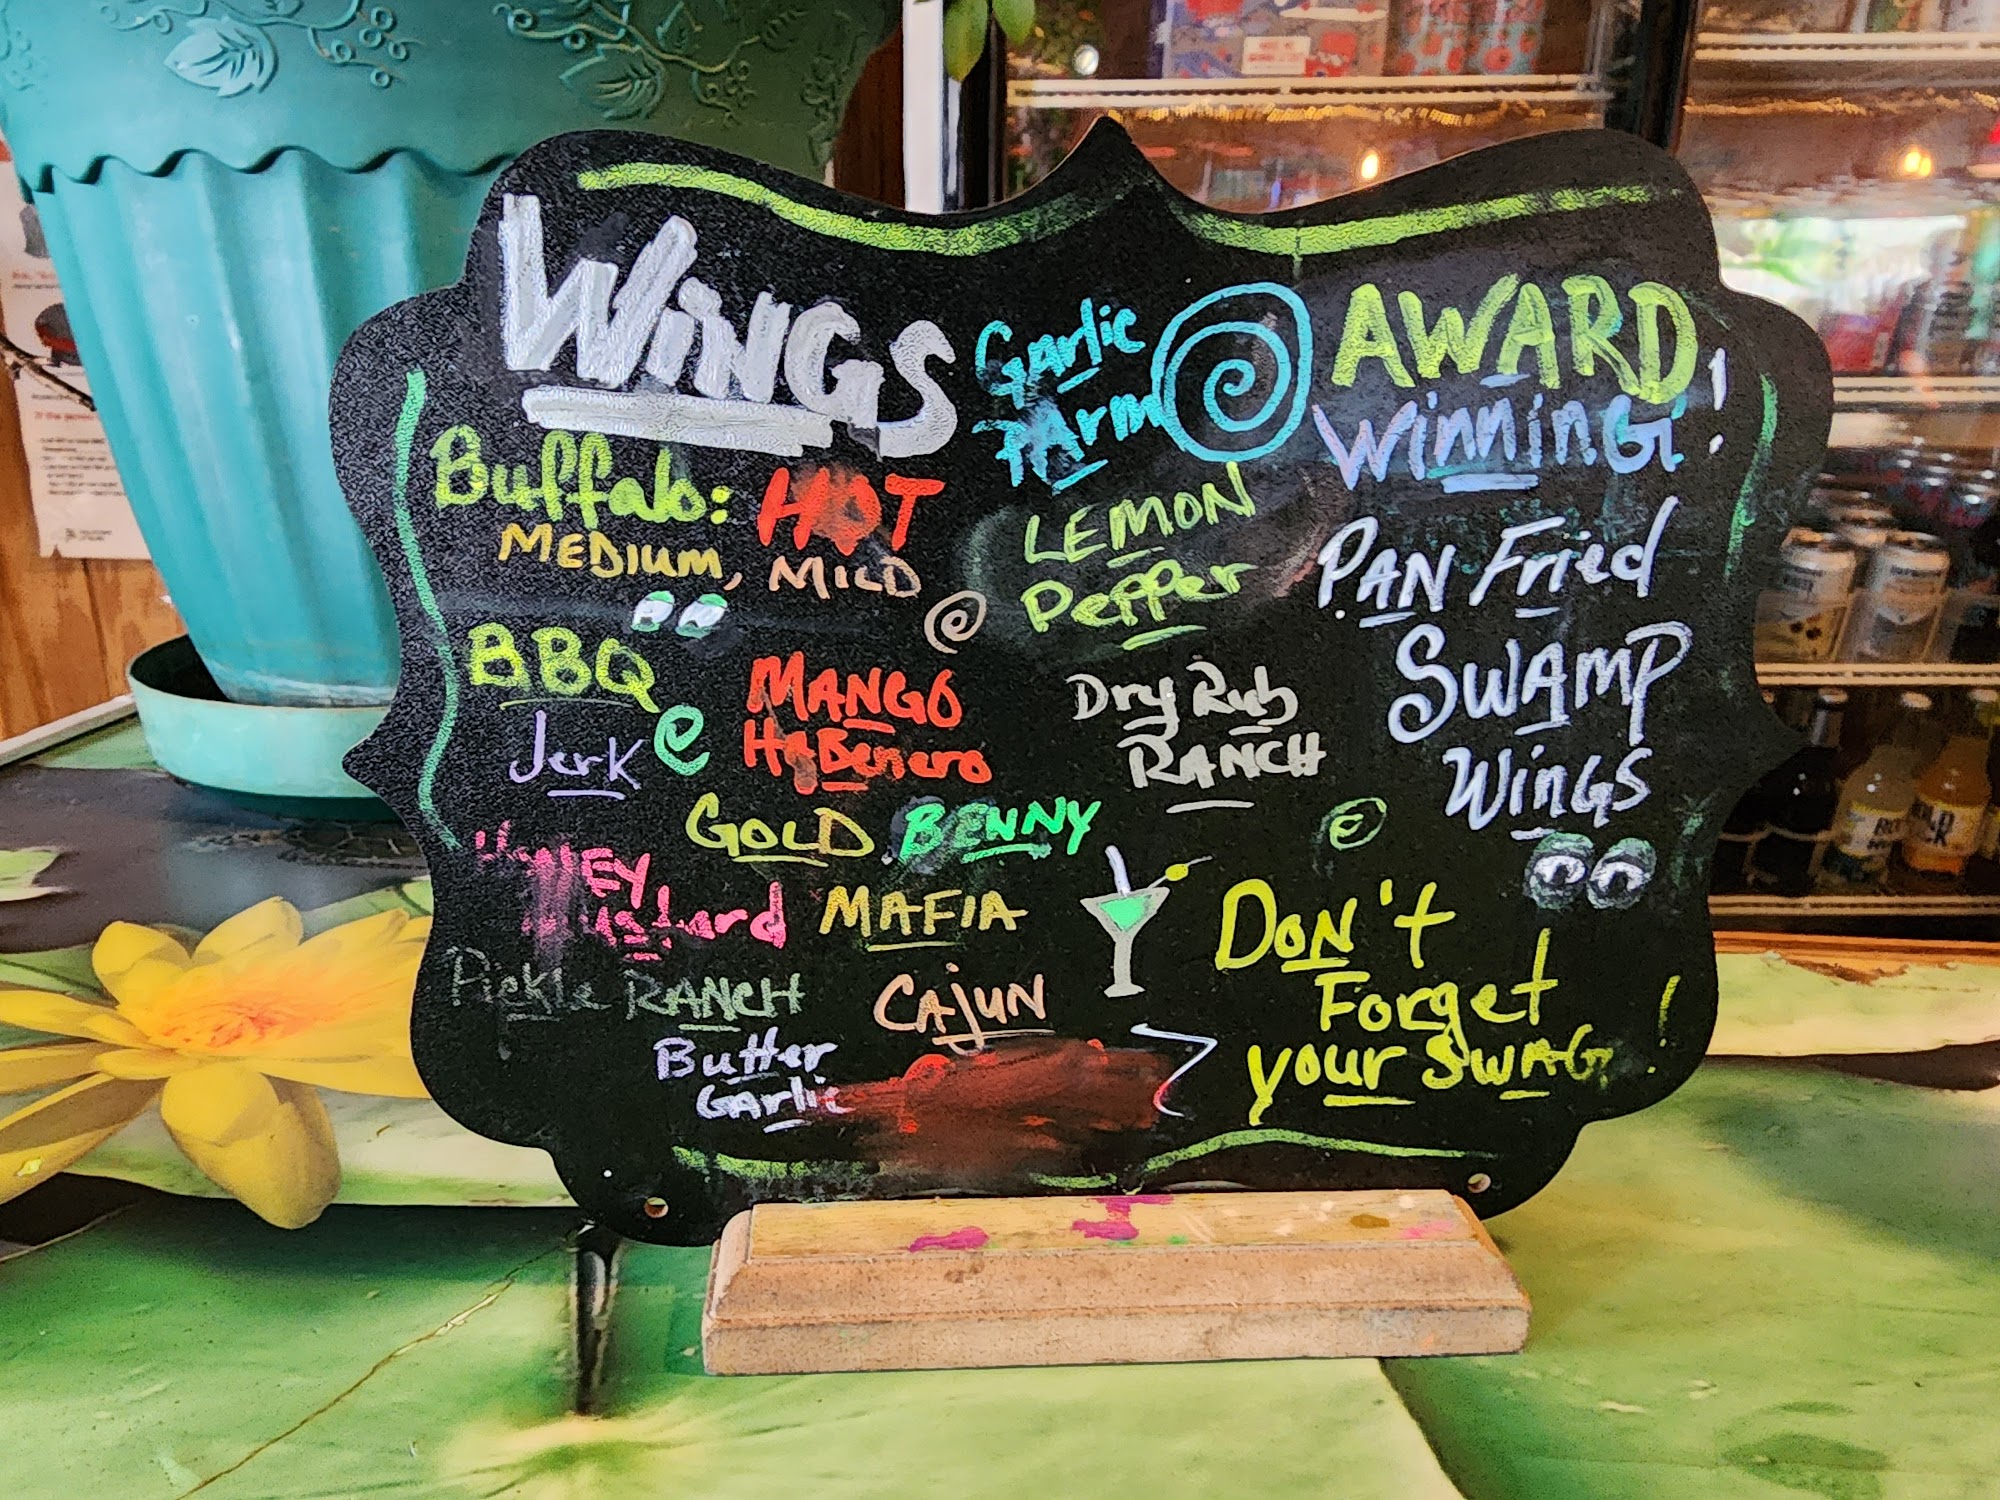 WiNGS
Buffalo: HOT
MEDIUM, MILD
BBQ
Jerk
MANGO
HaBenero
GOLD BENNY
HoNEY
Mustard
MAFIA
Pickle RANCH
CAjUN
Butter
GArlic
GArlic
PArm
LEMON
Pepper
Dry Rub
RANCH
AWARD
WinninG!
PAN Fried
SWAMP
WinGS
DoN't
Forget
your SWAG!